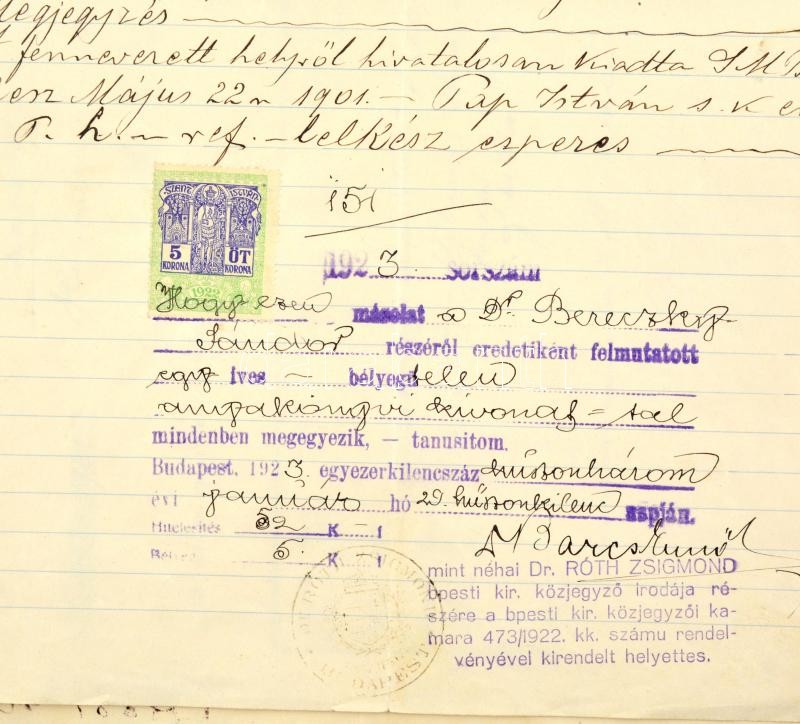 Megjegyzés
fenneverett helyről hivatalosan Kiadta
Május 22n 1901. – Pap István s. k.
P. h. – ref. – lelkész esperes
151
SZENT ISTVÁN
5 KORONA ÖT KORONA
1922
1923. sorszám
Hogy ezen másolat a Dr. Bereczky
Sándor részéről eredetiként felmutatott
egy íves – bélyegtelen
anyakönyvi kivonat = tal
mindenben megegyezik, – tanusitom.
Budapest, 1923. egyezerkilencszáz huszonhárom
évi január hó 29. huszonkilenc napján.
Hitelesítés 52 K – f
Bélyeg 5. K – f
mint néhai Dr. RÓTH ZSIGMOND
bpesti kir. közjegyző irodája ré-
szére a bpesti kir. közjegyzői ka-
mara 473/1922. kk. számu rendel-
vényével kirendelt helyettes.
DR RÓTH ZSIGMOND
BUDAPEST